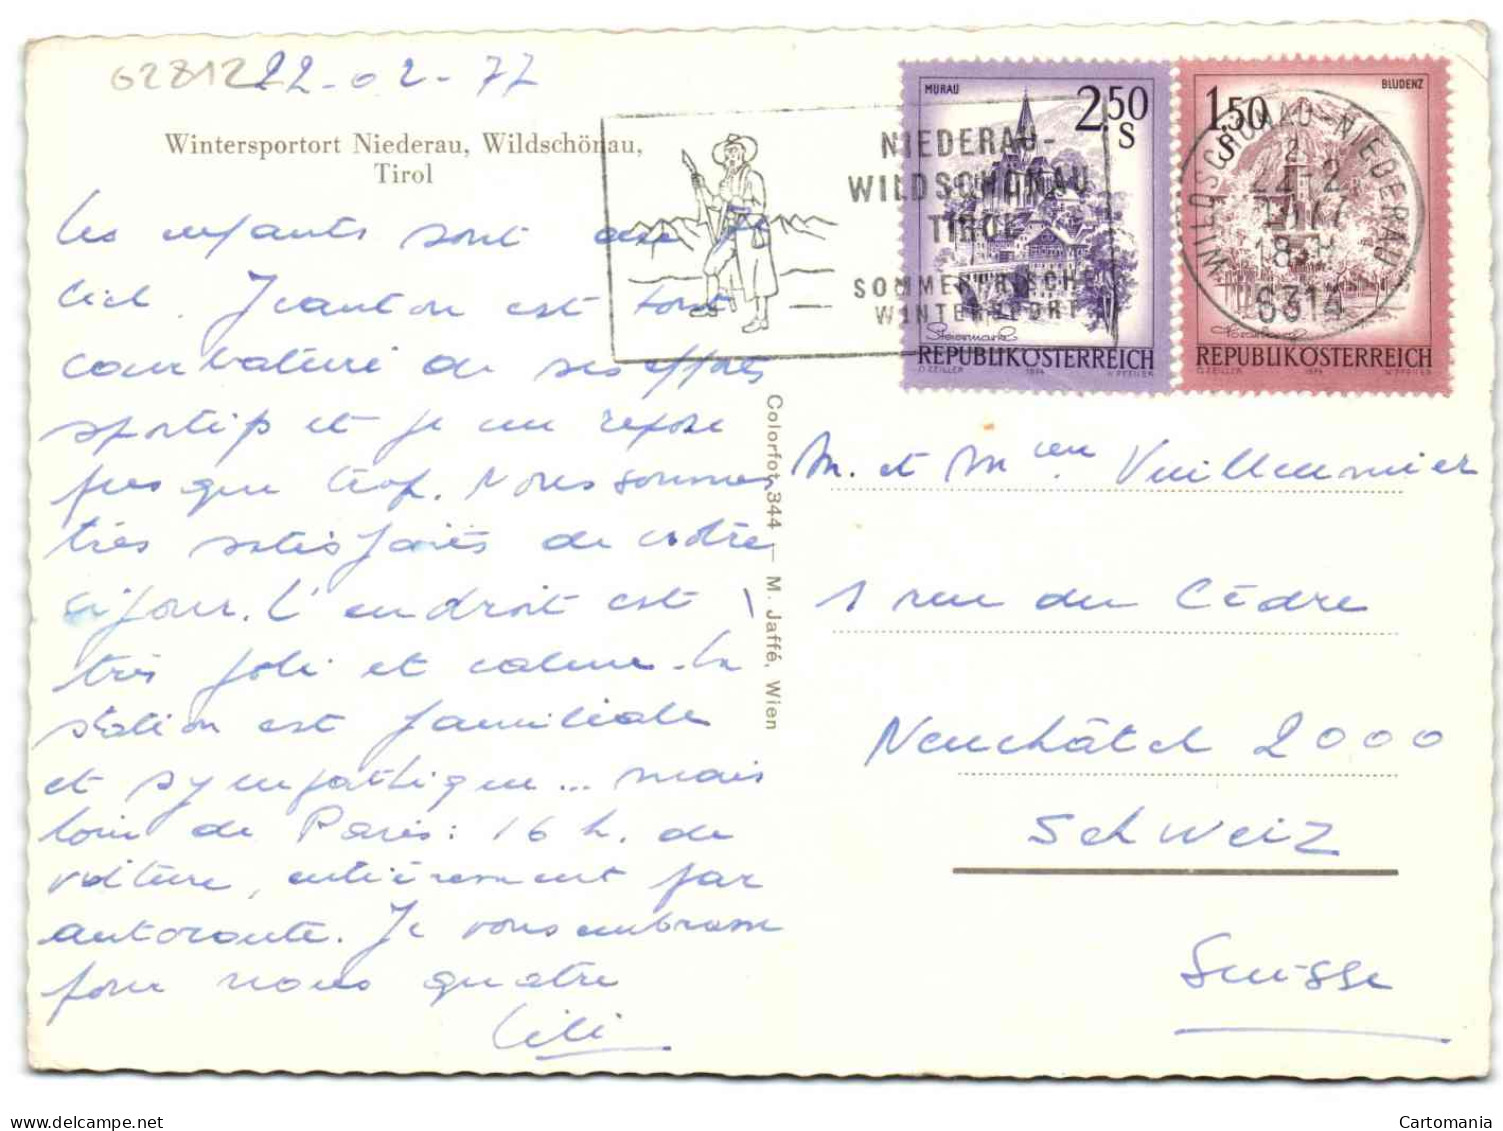 02812
22-02-77
Wintersportort Niederau, Wildschönau,
Tirol
Les enfants sont au
ciel. Jeanton est tout
courbaturé de ses efforts
sportifs et je me repose
presque trop. Nous sommes
très satisfaits de notre
séjour. L'endroit est
très joli et calme. La
station est familiale
et sympathique... mais
loin de Paris : 16 h. de
voiture, entièrement par
autoroute. Je vous embrasse
pour nous quatre
Lili
Colorfot 344 — M. Jaffé, Wien
NIEDERAU-
WILDSCHÖNAU
TIROL
SOMMERFRISCHE
WINTERSPORT
MURAU
2.50
S
Steiermark
REPUBLIK ÖSTERREICH
O. ZEILLER 1974 W. PFEILER
BLUDENZ
1.50
S
REPUBLIK ÖSTERREICH
O. ZEILLER 1974 W. PFEILER
WILDSCHÖNAU-NIEDERAU
22-2
6314
M. et Mme Vuilleumier
1 rue du Cèdre
Neuchâtel 2000
Schweiz
Suisse
Cartomania